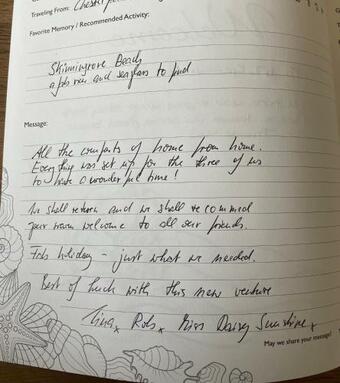 Traveling From: Chester
Favorite Memory / Recommended Activity:
Skinningrove Beach
and seaglass to find
Message:
All the comforts of home from home.
Everything was set up for the three of us
to have a wonderful time!
We shall return and we shall recommend
your warm welcome to all our friends.
holiday - just what we needed.
Best of luck with this new venture
Tina, Rob, Miss Daisy Sunshine x
May we share your message?